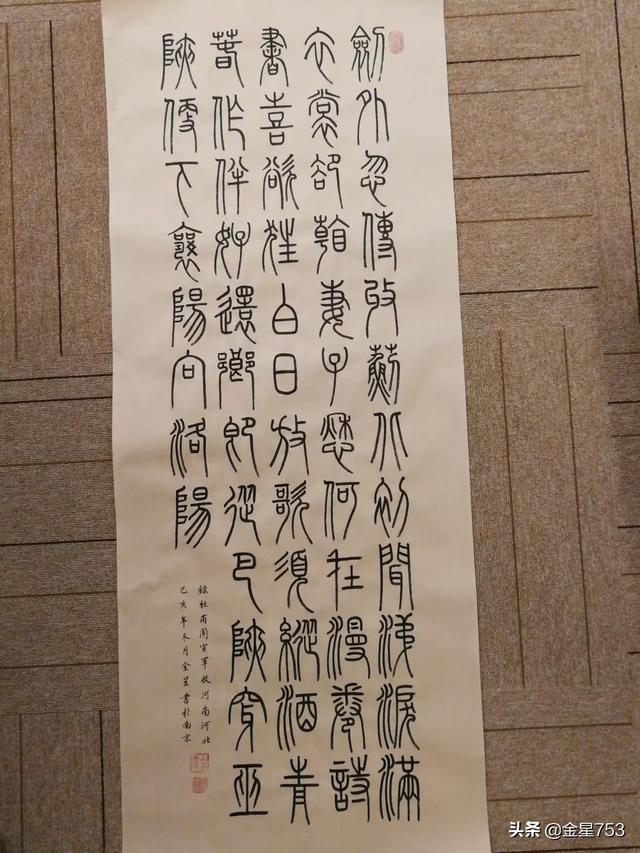 劍外忽傳收薊北初聞涕淚滿
衣裳卻看妻子愁何在漫卷詩
書喜欲狂白日放歌須縱酒青
春作伴好還鄉即從巴峽穿巫
峽便下襄陽向洛陽
錄杜甫聞官軍收河南河北
己亥年冬月金星書於南京
头条 @金星753